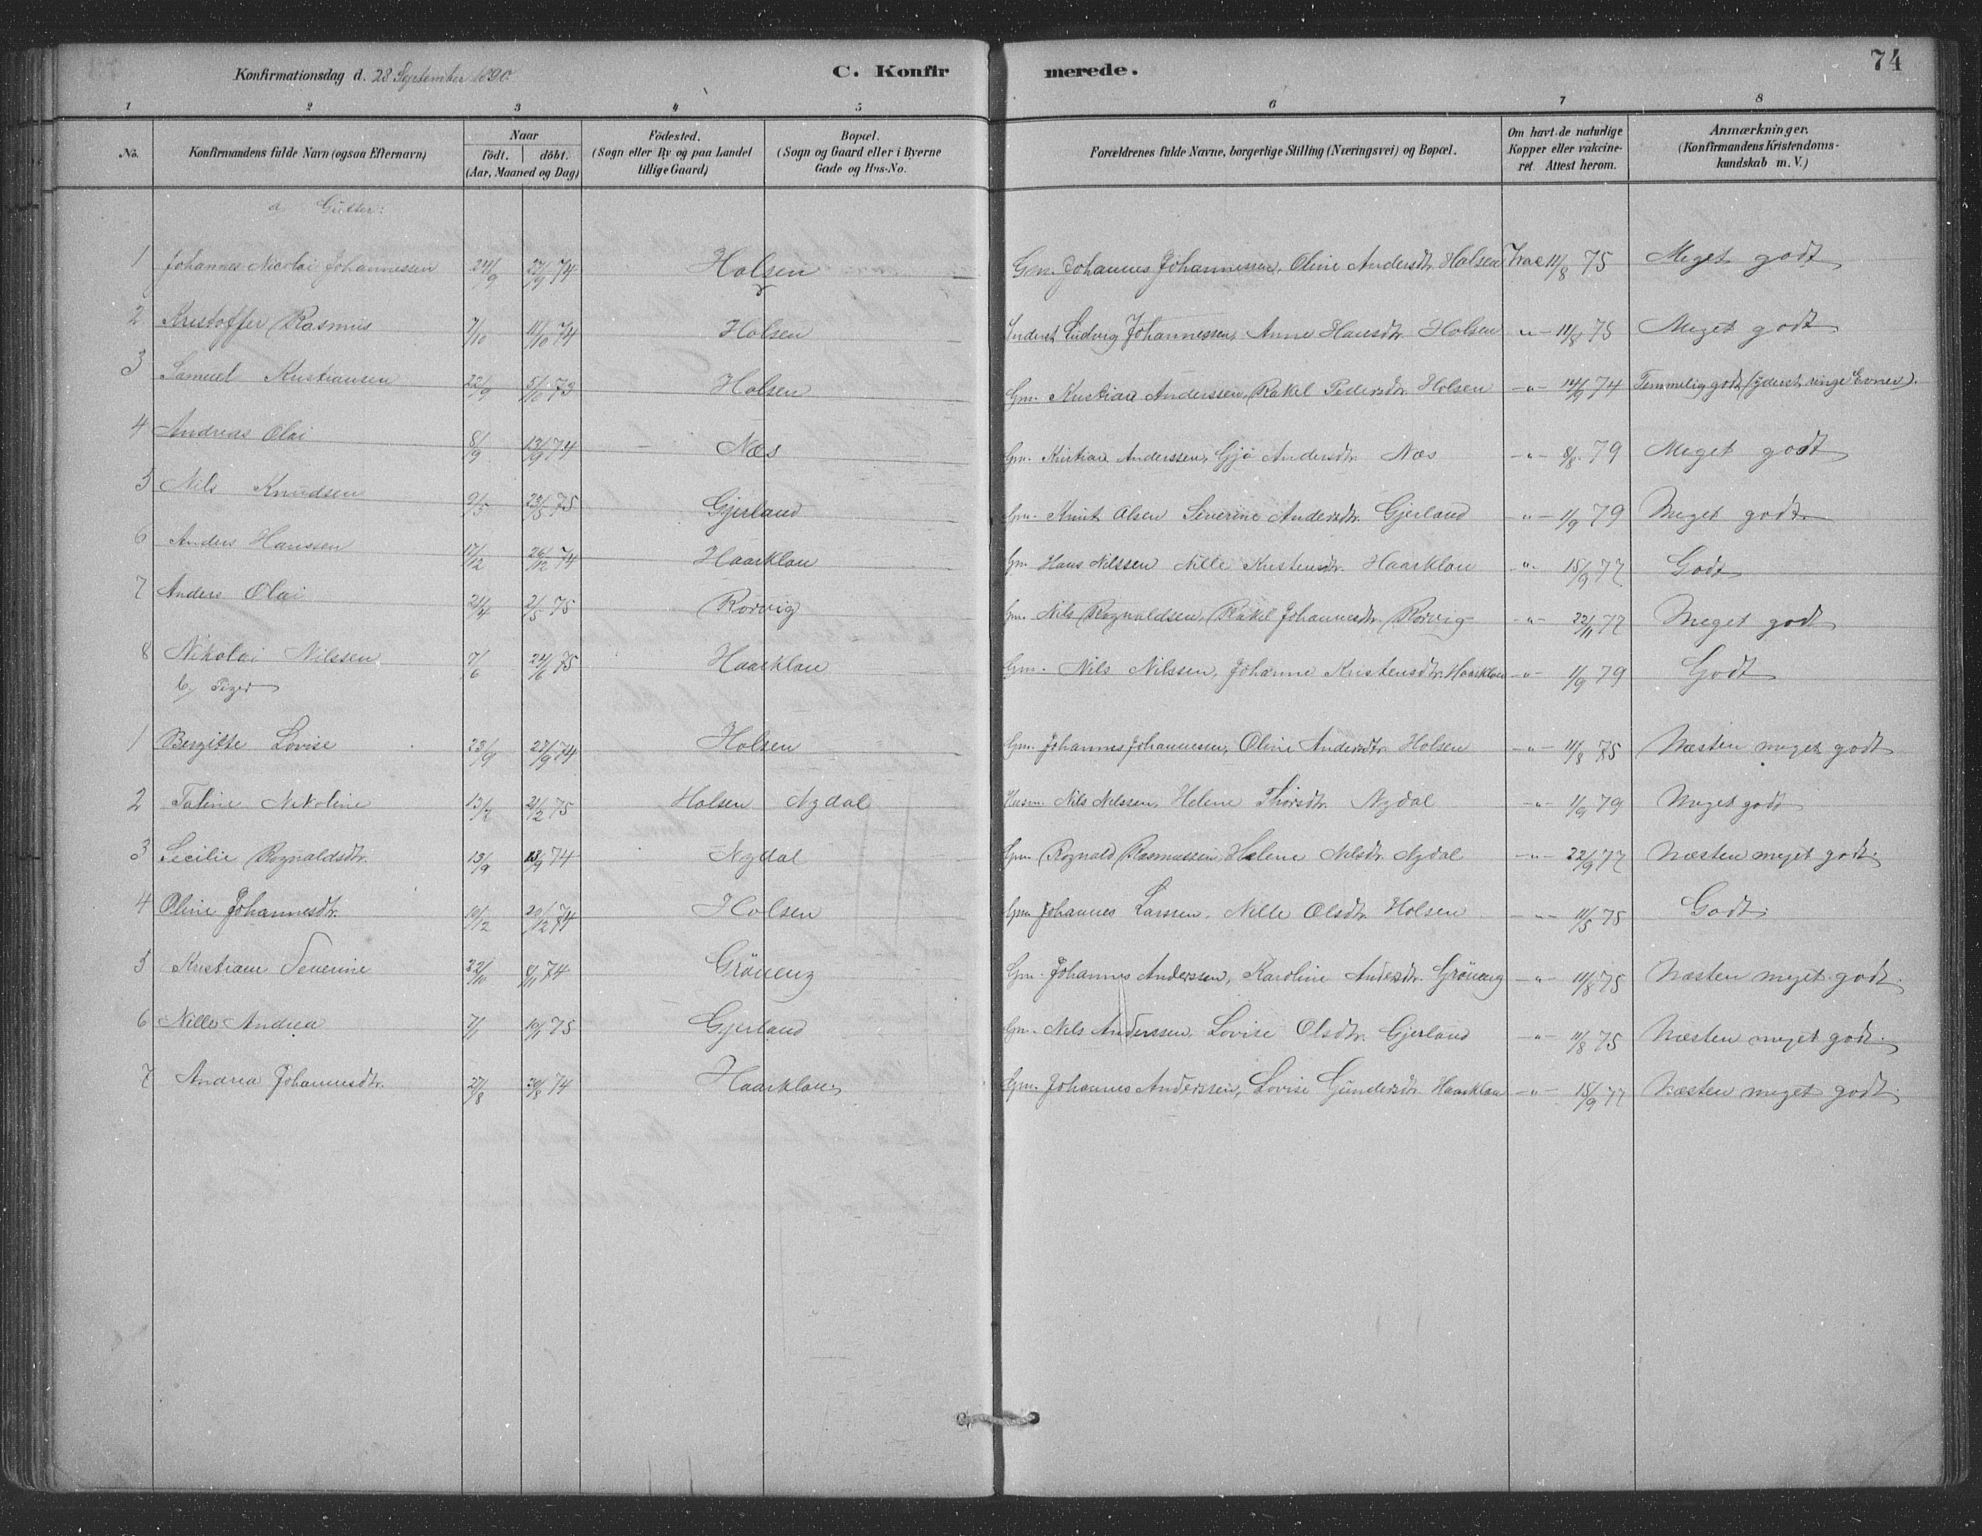 74
Konfirmationsdag d. 28 September 1890. C. Konfirmerede.
1 2 3 4 5 6 7 8
No. Konfirmandens fulde Navn (ogsaa Efternavn) Naar födt. döbt. (Aar, Maaned og Dag) Födested. (Sogn eller By og paa Landet tillige Gaard) Bopæl. (Sogn og Gaard eller i Byerne Gade og Hus-No. Forældrenes fulde Navne, borgerlige Stilling (Næringsvei) og Bopæl. Om havt de naturlige Kopper eller vakcineret. Attest herom. Anmærkninger. (Konfirmandens Kristendomskundskab m. V.)
a Gutter:
1 Johannes Nicolai Johannessen 24/9 27/9 74 Holsen Gm. Johannes Johannessen, Oline Andersdtr. Holsen Vac 11/8 75 Meget godt
2 Kristoffer Rasmus 7/10 11/10 74 Holsen Inderst Ludvig Johannessen, Anne Hansdtr. Holsen -"- 11/8 75 Meget godt
3 Samuel Kristiansen 22/9 5/10 73 Holsen Gm. Kristian Anderssen, Rakel Pedersdtr. Holsen -"- 14/9 74 Temmelig godt (yderst ringe Evner).
4 Andreas Olai 8/9 13/9 74 Næs Gm. Kristian Anderssen, Gjö Andersdtr. Næs -"- 8/8 79 Meget godt
5 Nils Knudsen 9/5 23/5 75 Gjerland Gm. Knut Olsen Severine Andersdtr. Gjerland -"- 1/9 79 Meget godt
6 Anders Hanssen 17/12 26/12 74 Haarklau Gm. Hans Nilssen Nille Kristensdtr. Haarklau -"- 15/9 77 Godt
7 Anders Olai 21/4 2/5 75 Rörvig Gm. Nils Rognaldsen, Rakel Johannesdtr. Rörvig -"- 22/11 77 Meget godt
8 Nikolai Nilssen 7/6 24/6 75 Haarklau Gm. Nils Nilssen, Johanne Kristensdtr. Haarklau -"- 1/9 79 Godt
b, Piger
1 Bergitte Lovise 23/9 27/9 74 Holsen Gm. Johannes Johannessen, Oline Andersdtr. Holsen -"- 11/8 75 Næsten meget godt
2 Taline Nikoline 13/2 21/2 75 Holsen Nydal Husm. Nils Nilssen, Helene Thorsdtr. Nydal -"- 1/9 79 Meget godt
3 Secilie Rognaldsdtr. 13/9 /9 74 Nydal Gm. Rognald Rasmussen, Helene Nilsdtr. Nydal -"- 22/9 77 Næsten meget godt.
4 Oline Johannesdtr. 10/12 20/12 74 Holsen Gm. Johannes Larssen, Nille Olsdtr. Holsen -"- 11/5 75 Godt.
5 Kristiane Severine 22/10 /11 74 Gröneng Gm. Johannes Anderssen, Karoline Andersdtr. Gröneng -"- 11/8 75 Næsten meget godt.
6 Nille Andrea 7/1 10/1 75 Gjerland Gm. Nils Anderssen, Lovise Olsdtr. Gjerland -"- 11/8 75 Næsten meget godt.
7 Andrea Johannesdtr. 27/8 30/8 74 Haarklau Gm. Johannes Anderssen, Lovise Gundersdtr. Haarklau -"- 15/9 77 Næsten meget godt.